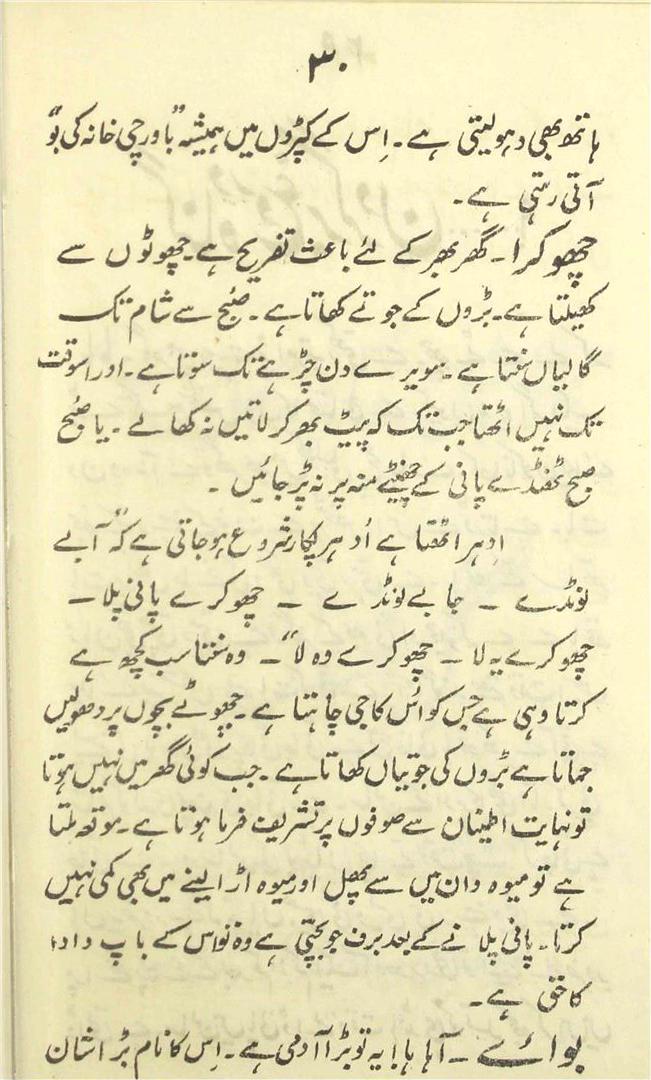 ۳۰
ہاتھ بھی دہو لیتی ہے۔ اِس کے کپڑوں میں ہمیشہ "باورچی خانہ کی بُو"
آتی رہتی ہے۔
چھوکرا۔ گھر بھر کے لئے باعث تفریح ہے۔ چھوٹوں سے
کھیلتا ہے۔ بڑوں کے جوتے کھاتا ہے۔ صُبح سے شام تک
گالیاں سُنتا ہے۔ سویرے دن چڑہے تک سوتا ہے۔ اور اسوقت
تک نہیں اٹھتا جب تک کہ پیٹ بھر کر لاتیں نہ کھا لے۔ یا صُبح
صبح ٹھنڈے پانی کے چھینٹے منہ پر نہ پڑ جائیں۔
اِدہر اٹھتا ہے اُدہر پکار شروع ہو جاتی ہے کہ "آبے
لونڈے ۔ جا بے لونڈے ۔ چھوکرے پانی پلا۔
چھوکرے یہ لا ۔ چھوکرے وہ لا"۔ وہ سنتا سب کچھ ہے
کرتا وہی ہے جس کو اُس کا جی چاہتا ہے۔ چھوٹے بچوں پر دھولیں
جماتا ہے بڑوں کی جوتیاں کھاتا ہے۔ جب کوئی گھر میں نہیں ہوتا
تو نہایت اطینان سے صوفوں پر تشریف فرما ہوتا ہے۔ موقعہ ملتا
ہے تو میوہ دان میں سے پھل اور میوہ اڑا لینے میں بھی کمی نہیں
کرتا۔ پانی پلانے کے بعد برف جو بچتی ہے وہ تو اس کے باپ دادا
کا حق ہے۔
بوائے ۔ آہا ہا! یہ تو بڑا آدمی ہے۔ اِس کا نام بڑا شان